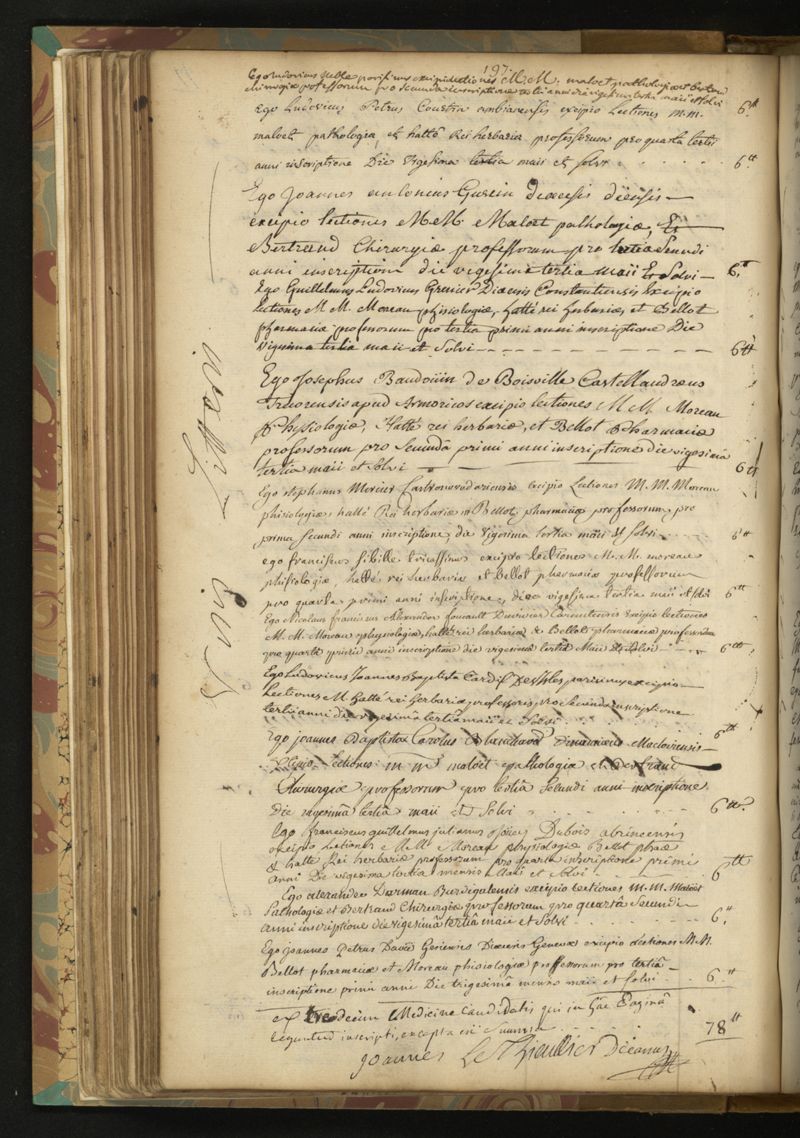 197.
Ego Ludovicus parisinus excipio lectiones M.M. maloet pathologiæ et bertrand
chirurgiæ professorum pro secunda inscriptione anni die vigesima tertia maii et solvi 6 tt
Ego Ludovicus Petrus Coustin ambianensis excipio Lectiones m.m.
maloet pathologiæ et hallé Rei herbariæ professorum pro quarta tertii
anni inscriptione Die vigesima tertia maii et solvi 6 tt
Ego joannes antonius Guerin diœcesis diensis
excipio lectiones M M Maloet pathologiæ, Et
Bertrand Chirurgiæ professorum pro tertia Secundi
anni inscriptione die vigesima tertia maii Et Solvi 6 tt
Ego Guillelmus Ludovicus Grenier Diœcesis Constantiensis Excipio
Lectiones M M. Moreau phisiologiæ, hallé rei herbariæ, et Bellot
pharmaciæ professorum pro tertia primi anni inscriptione Die
vigesima tertia maii et Solvi 6 tt
Ego Josephus Baudoüin de Boisville Castellaudrens
Trecorensis apud Armoricos excipio lectiones M M. Moreau
phisiologiæ, Hallé rei herbariæ, et Bellot Pharmaciæ
professorum pro secundâ primi anni inscriptione die vigesima
tertia maii et Solvi 6 tt
Ego stephanus excipio Lectiones M. M. Moreau
phisiologiæ, hallé Rei herbariæ et Bellot pharmaciæ professorum, pro
prima secundi anni inscriptione, die vigesima tertia maii et solvi 6 tt
ego franciscus sibille excipio lectiones M. M. moreau
phisiologiæ, hallé, rei herbariæ et bellot pharmaciæ professorum
pro quarta primi anni inscriptione, die vigesima tertia maii et solvi 6 tt
Ego Nicolaus franciscus Alexander foucault Carnutensis Excipio lectiones
M. M. Moreau physiologiæ, hallé rei herbariæ & Bellot pharmaciæ professorum
pro quarta primi anni inscriptione die vigesima tertia Maii et solvi 6 tt
Ego Ludovicus Joannes Baptista Cardif parisinus excipio
Lectiones M. Hallé rei herbariæ professoris pro secunda inscriptione
tertii anni die vigesimâ tertiâ maii et solvi 6 tt
Ego joannes Baptista Carolus Macloviensis
Excipio lectiones m m maloet pathologiæ et Bertrand
chirurgiæ professorum pro tertiâ secundi anni inscriptione
Die vigesimâ tertiâ maii et Solvi 6 tt
Ego franciscus guillelmus julianus Dubois abrincensis
excipio Lectiones M M Moreau physiologiæ Bellot phaæ
& hallé Rei herbariæ professorum pro quarta inscriptione primi
anni Die vigesima tertia mensis Maii et Solvi 6 tt
Ego alexander Darman Burdigalensis excipio lectiones M.M. Maloet
Pathologiæ et Bertrand Chirurgiæ professorum pro quartâ Secundi
anni inscriptione die vigesimâ tertiâ maii et Solvi 6 tt
Ego joannes Petrus David excipio lectiones M.M.
Bellot pharmaciæ et Moreau phisiologiæ professorum pro tertiâ
inscriptione primi anni Die trigesimâ mensis maii et solvi 6 tt
ex tredecim Medicinæ Candidatis qui in hac Paginâ
leguntur inscripti, excepta est summa 78 tt
joannes Le Thieullier Decanus